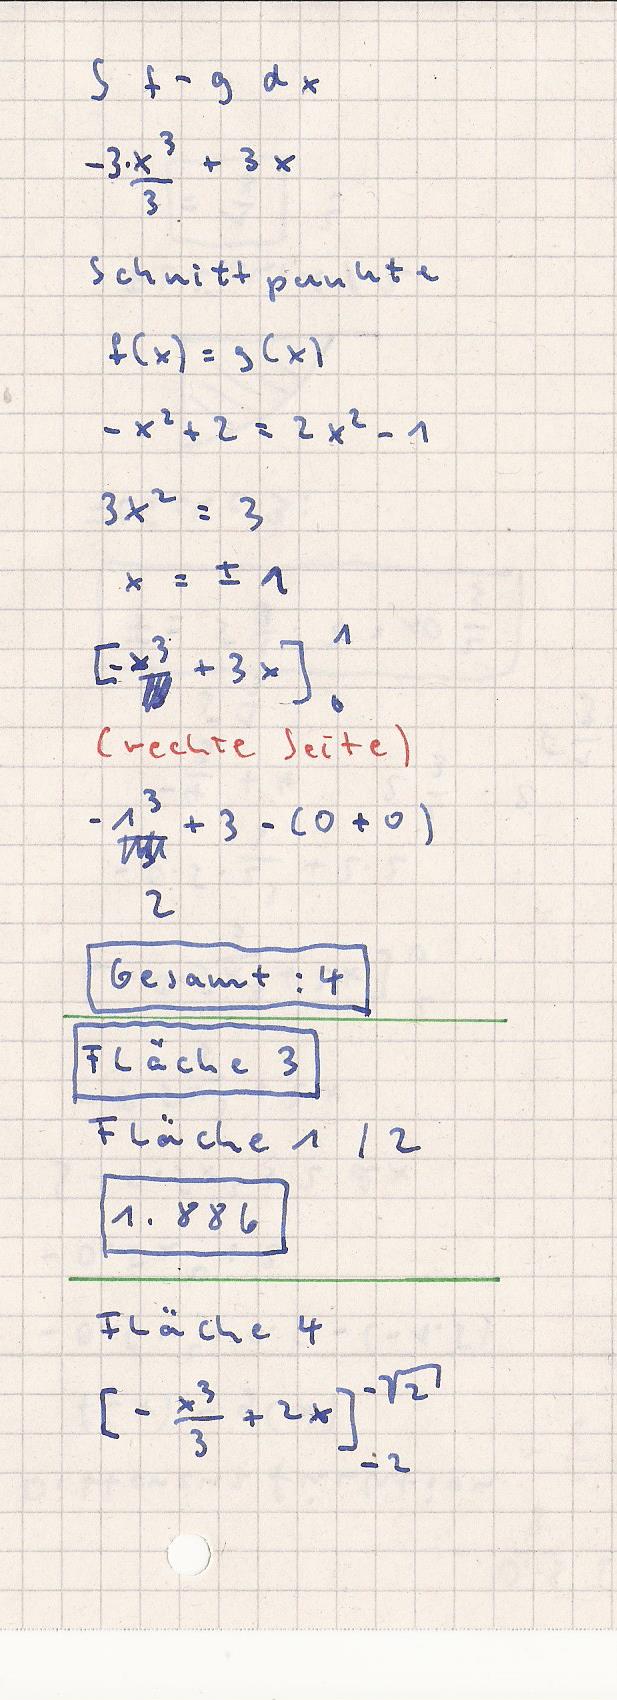 ∫ f - g dx
-3·x³/3 + 3x
Schnittpunkte
f(x) = g(x)
-x² + 2 = 2x² - 1
3x² = 3
x = ± 1
[-x³ + 3x]₀¹
(rechte Seite)
-1³ + 3 - (0 + 0)
2
Gesamt : 4
Fläche 3
Fläche 1 / 2
1.886
Fläche 4
[- x³/3 + 2x] -√2 -2